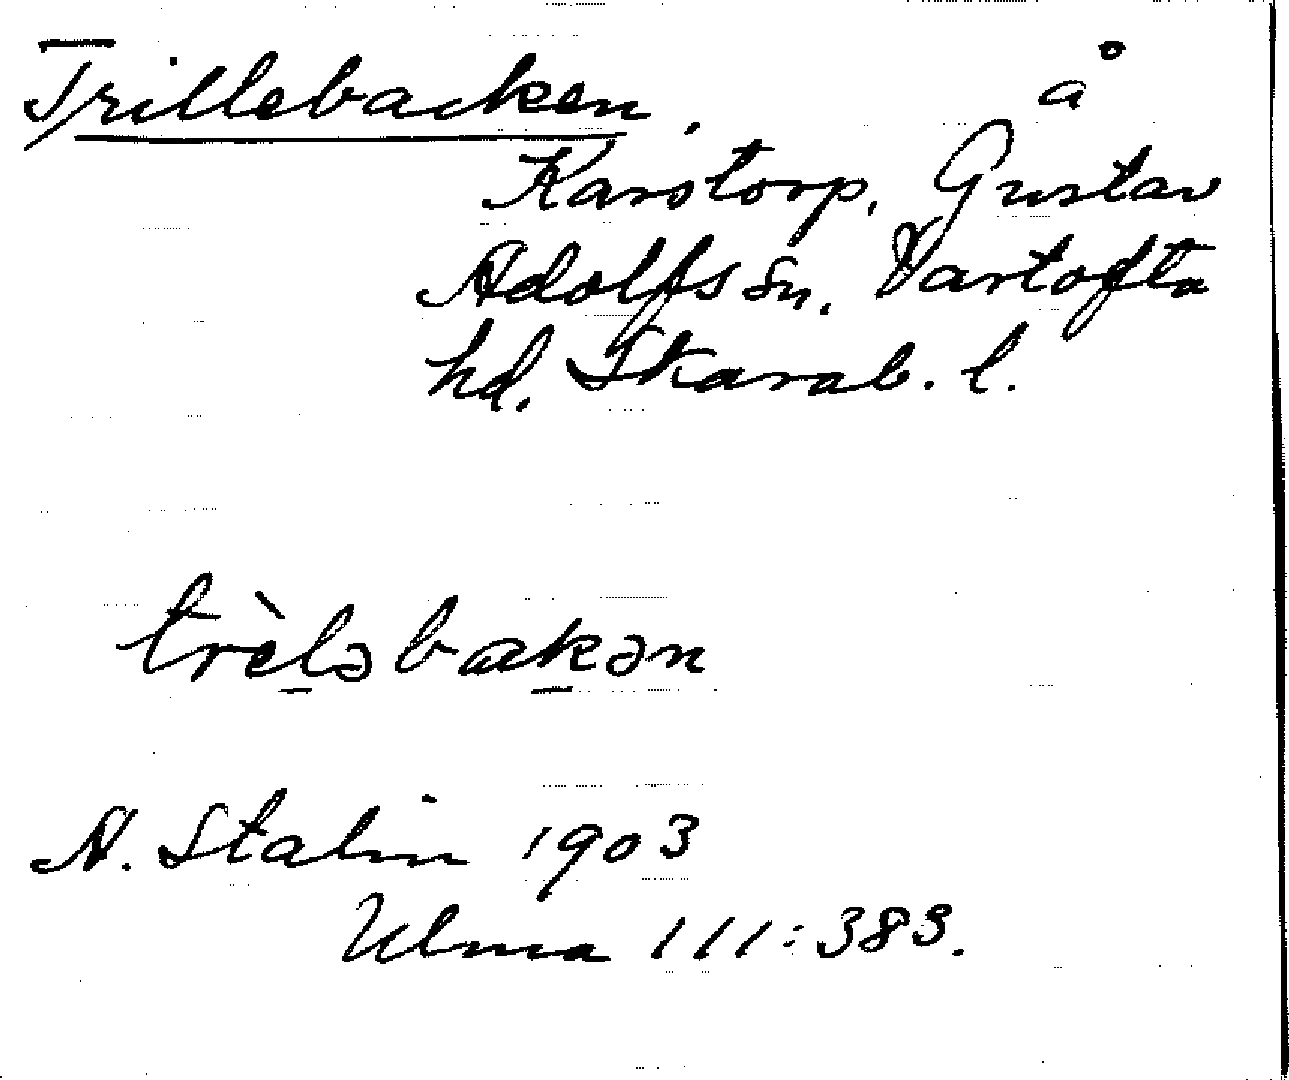 Trillebacken. å
Karstorp, Gustav
Adolfs sn, Vartofta
hd. Skarab. l.
trèləbakən
A. Stalin 1903
Ulma 111:383.